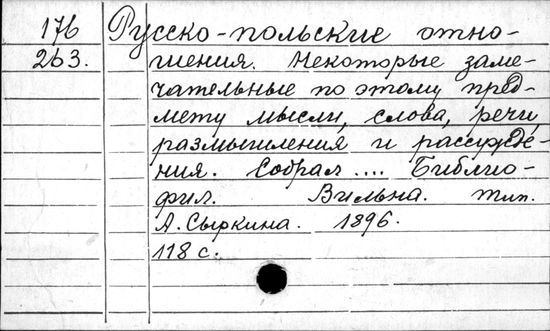 176 Русско-польские отно-
263. шения. Некоторые заме-
чательные по этому пред-
мету мысли, слова, речи,
размышления и рассужде-
ния. Собрал .... Библио-
фил. Вильна. Тип.
А. Сыркина. 1896.
118 с.